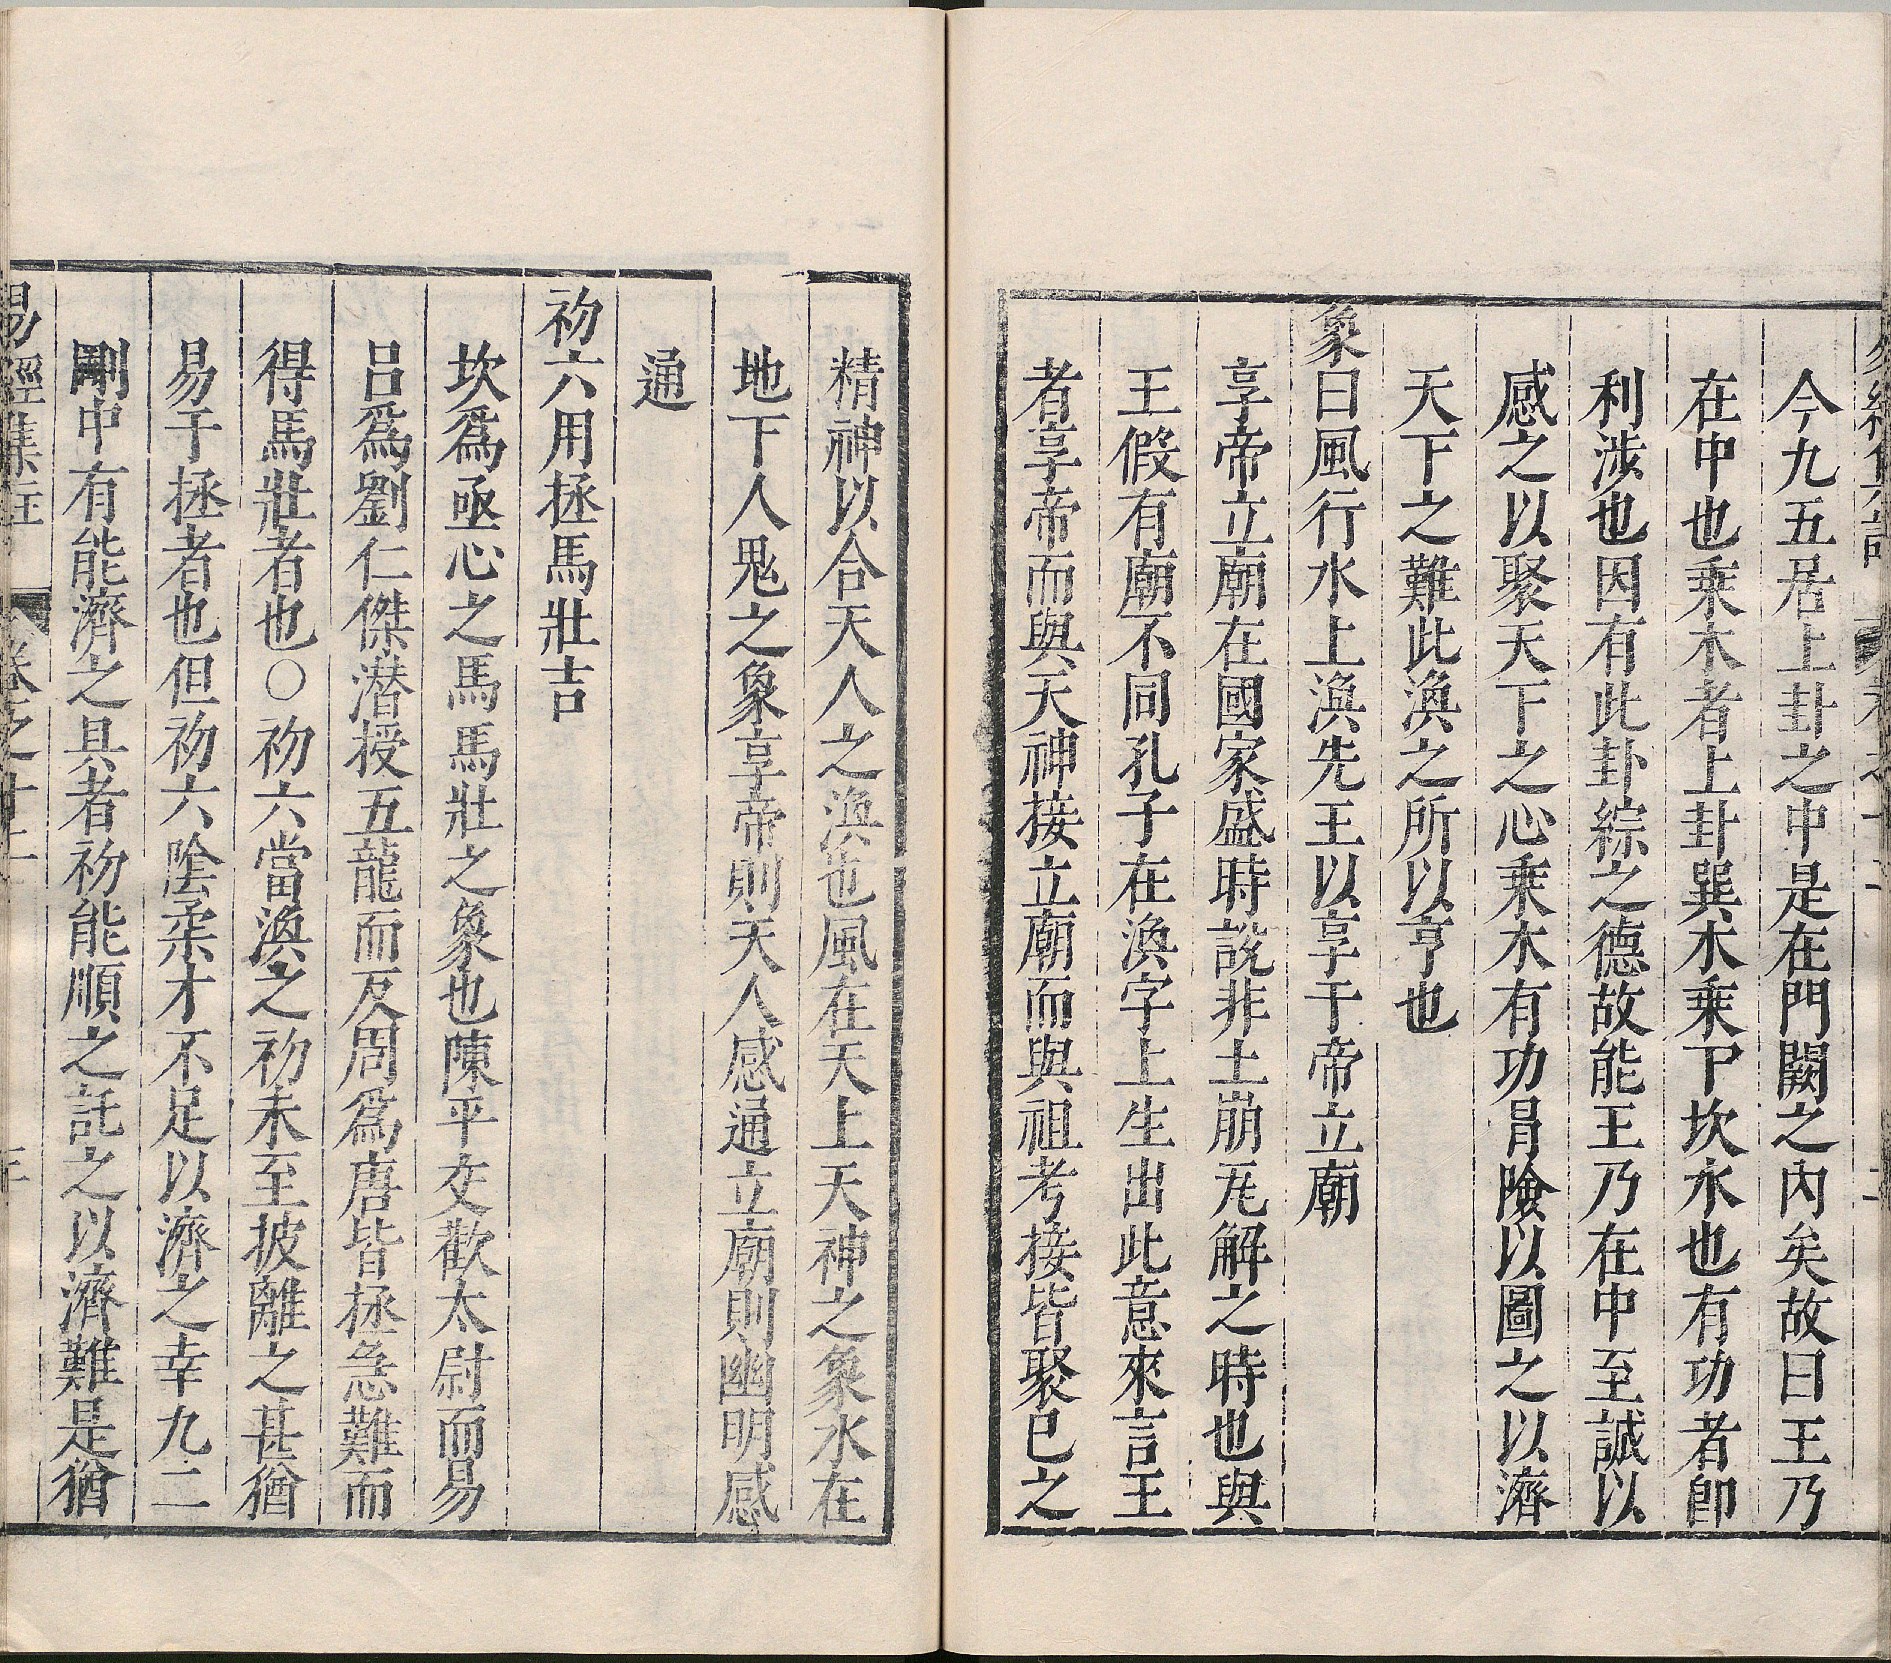 今九五居上卦之中是在門闕之內矣故曰王乃
在中也乘木者上卦巽木乘下坎水也有功者卽
利涉也因有此卦綜之德故能王乃在中至誠以
感之以聚天下之心乘木有功冐險以圖之以濟
天下之難此渙之所以亨也
象曰風行水上渙先王以享于帝立廟
享帝立廟在國家盛時說非土崩瓦解之時也與
王假有廟不同孔子在渙字上生出此意來言王
者享帝而與天神接立廟而與祖考接皆聚已之
精神以合天人之渙也風在天上天神之象水在
地下人鬼之象享帝則天人感通立廟則幽明感
通
初六用拯馬壯吉
坎爲亟心之馬馬壯之象也陳平交歡太尉而易
呂爲劉仁傑潛授五龍而反周爲唐皆拯急難而
得馬壯者也○初六當渙之初未至披離之甚猶
易于拯者也但初六陰柔才不足以濟之幸九二
剛中有能濟之具者初能順之託之以濟難是猶
易經集註 卷之十二